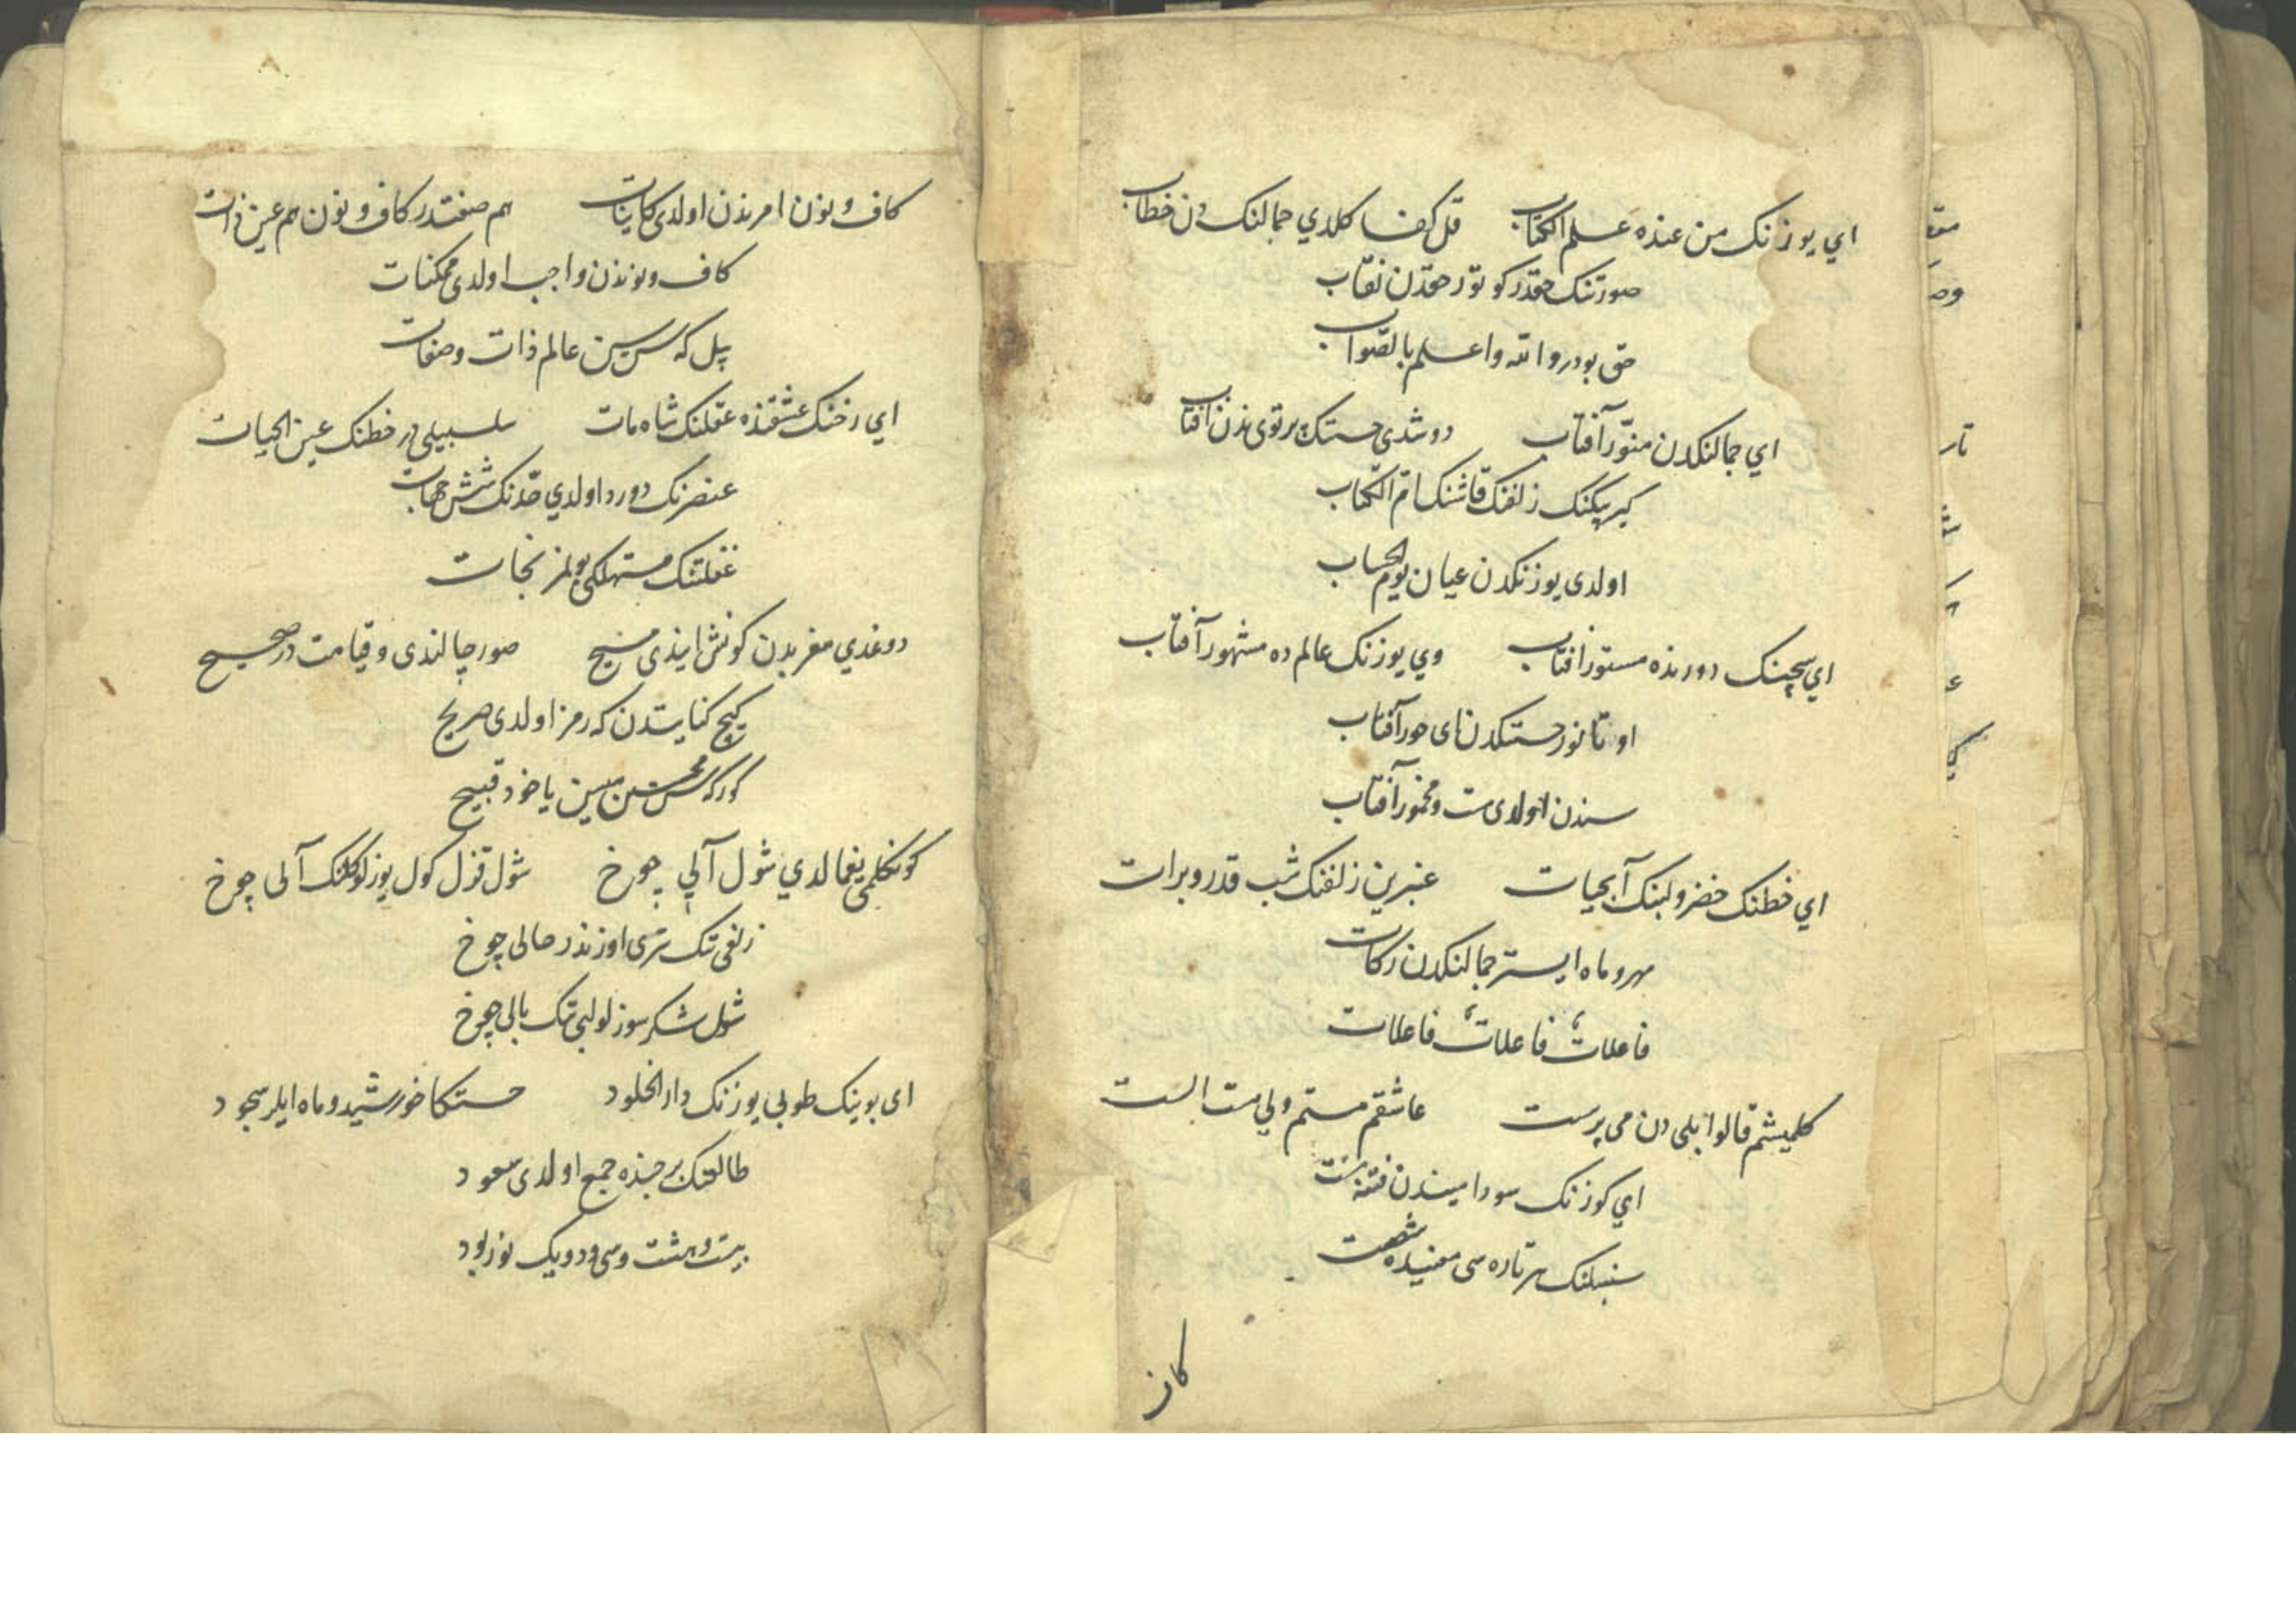 اي يوزنك من عنده علم الكتاب قل كفا كلدي جمالنك دن خطاب
صورتنك حقدر كوتور حقدن نقاب
حق بودر والله واعلم بالصواب
اي جمالنكدن منور آفتاب دوشدي حسنك پرتوى بدن آفتاب
كيرپيكنك زلفنك قاشنك ام الكتاب
اولدى يوزنكدن عيان يوم الحساب
اي سچينك دورنده مستور افتاب وي يوزنك عالم ده مشهور آفتاب
اوتانور حسنكدن اى حور آفتاب
سندن اولدى مست ومخمور آفتاب
اي خطنك خضر ولبنك آبحيات عنبرين زلفنك شب قدر وبرات
مهر وماه ايستر جمالنكدن زكات
فاعلات فاعلات فاعلات
كلميشم قالوا بلى دن مى پرست عاشقم مستم ولي مست الست
اي كوزنك سوداسيندن فتنه مست
سنبلنك هر تاره سى معنيده شصت
كاف
كاف ونون امرندن اولدى كاينات هم صفتدر كاف ونون هم عين ذات
كاف ونوندن واجب اولدى ممكنات
بيل كه سن سين عالم ذات وصفات
اي رخنك عشقنده عقلنك شاه مات سلسبيلى در خطنك عين الحيات
عنصرنك دورد اولدي حدنك شش جهات
غفلتنك مستهلكى بولمز نجات
دوغدي مغربدن كونش ايندى مسيح صور چالندى وقيامت در صحيح
كيچ كنايتدن كه رمز اولدى صريح
كور كه سن محسن ميسين يا خود قبيح
كونكلمى يغمالدي شول آلي چوخ شول قزل كول يوزلو كلنك آلى چوخ
زلفى تك سرى اوزندر حالى چوخ
شول شكر سوزلو لبى تك بالى چوخ
اى بوينك طوبى يوزنك دار الخلود حسنكا خورشيد وماه ايلر سجود
طالعنك برجنده جمع اولدى سعود
بيست وهشت وسى ودو يك نور بود